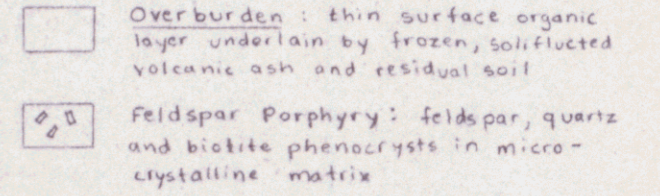 Overburden : thin surface organic
layer underlain by frozen, soliflucted
volcanic ash and residual soil
Feldspar Porphyry: feldspar, quartz
and biotite phenocrysts in micro-
crystalline matrix